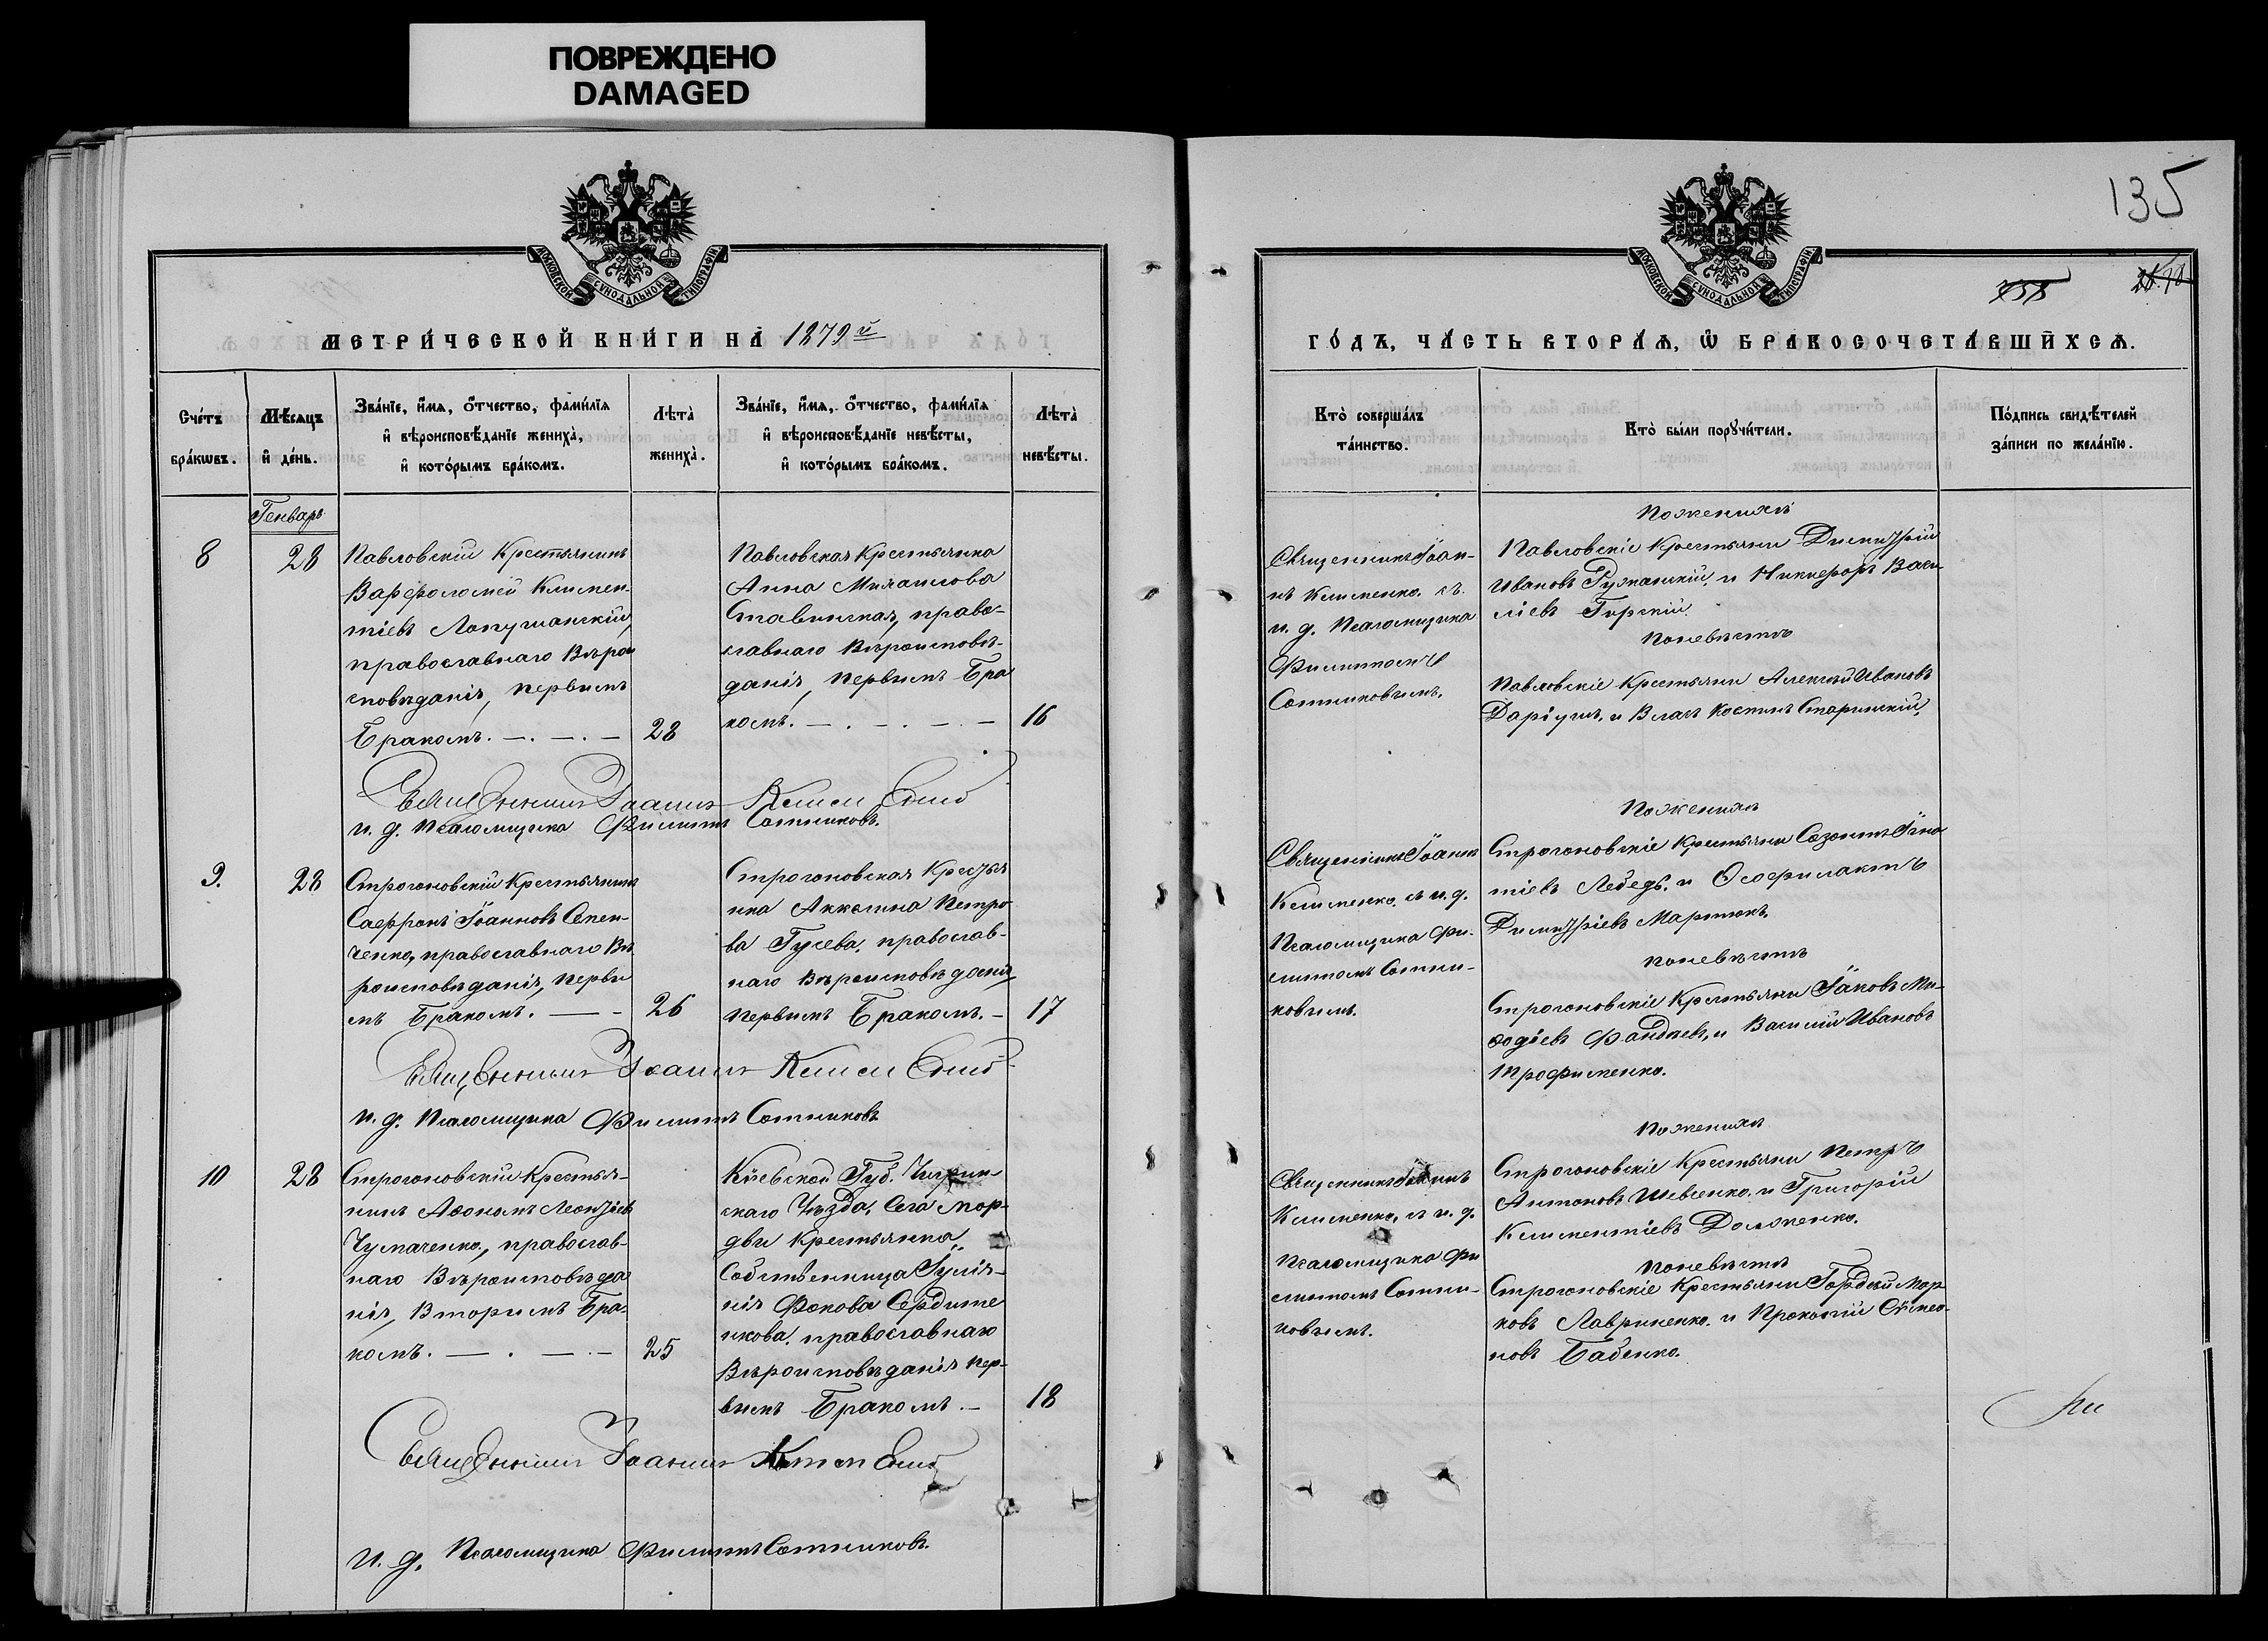 ПОВРЕЖДЕНО
DAMAGED
МОСКОВСКОЙ СУНОДАЛЬНОЙ ТИПОГРАФІИ
МЕТРИ́ЧЕСКОЙ КНИ́ГИ НА 1879й
Сче́тъ бра́кѡвъ.
Мѣ́сяцъ и҆ де́нь.
Зва́нїе, и҆́мѧ, ѻ҆́тчество, фами́лїѧ
и҆ вѣроисповѣ́данїе жениха̀,
и҆ кото́рымъ бра́комъ.
Лѣта̀ жениха̀.
Зва́нїе, и҆́мѧ, ѻ҆́тчество, фами́лїѧ
и҆ вѣроисповѣ́данїе невѣ́сты,
и҆ кото́рымъ бра́комъ.
Лѣта̀ невѣ́сты.
Генварь
8
28
Павловскій Крестьянинъ
Варфоломей Климен-
тіевъ Лопушанскій,
православнаго Вѣрои
сповѣданія, первымъ
Бракомъ.
28
Павловская Крестьянка
Анна Михаилова
Ставинская, право-
славнаго Вѣроисповѣ-
данія, первымъ Бра
комъ.
16
Священникъ Іоаннъ Клименко
и. д. Псаломщика Филиппъ Сотниковъ.
9.
28
Строгоновскій Крестьянинъ
Саффронъ Іоанновъ Семен-
ченко, православнаго Вѣ
роисповѣданія, первы
мъ Бракомъ.
26
Строгоновская Крестья
нка Аккелина Петро
ва Гусева, православ-
наго Вѣроисповѣданія,
первымъ Бракомъ.
17
Священникъ Іоаннъ Клименко
и. д. Псаломщика Филиппъ Сотниковъ
10
28
Строгоновскій Крестья-
нинъ Леонтіевъ
Чумаченко, православ-
наго Вѣроисповѣда
нія, Вторымъ Бра-
комъ.
25
Кіевской Губ. Чигрин-
скаго Уѣзда, Села Мор-
двы Крестьянка
Собственница Іулія-
нія Фокова
православнаго
Вѣроисповѣданія пер-
вымъ Бракомъ.
18
Священникъ Іоаннъ Клименко
и. д. Псаломщика Филиппъ Сотниковъ.
135
МОСКОВСКОЙ СУНОДАЛЬНОЙ ТИПОГРАФІИ
ГО́ДЪ, ЧА́СТЬ ВТОРА́Ѧ, Ѡ҆ БРАКОСОЧЕТА́ВШИХСѦ.
Кто̀ соверша́лъ
та́инство.
Кто̀ бы́ли порꙋчи́тели.
По́дпись свидѣ́телей
за́писи по жела́нїю.
Священникъ Іоан-
нъ Клименко. съ
и. д. Псаломщика
Филиппомъ
Сотниковымъ.
По женихѣ
Павловскіе Крестьяне Димитрій
Ивановъ Ружанскій, и Никифоръ Васи
ліевъ Гирскій.
По невѣстѣ
Павловскіе Крестьяне Алексѣй Ивановъ
и Власъ Костинъ Старинскій.
Священникъ Іоаннъ
Клименко, съ и. д.
Псаломщика Фи-
липпомъ Сотни-
ковымъ.
По женихѣ
Строгоновскіе Крестьяне Созонтъ Игна
тіевъ Лебедь, и Ѳеофилактъ
Димитріевъ Мартюкъ.
По невѣстѣ
Строгоновскіе Крестьяне Іаковъ Ме-
ѳодіевъ и Василій Ивановъ
Трофименко.
Священникъ Іоаннъ
Клименко, съ и. д.
Псаломщика Фи
липпомъ Сотни-
ковымъ.
По женихѣ
Строгоновскіе Крестьяне Петръ
Антоновъ Шевченко, и Григорій
Климентіевъ Долженко.
По невѣстѣ
Строгоновскіе Крестьяне Гордѣй Мар
ковъ Лавриненко, и Прокопій Симео-
новъ Бабенко.